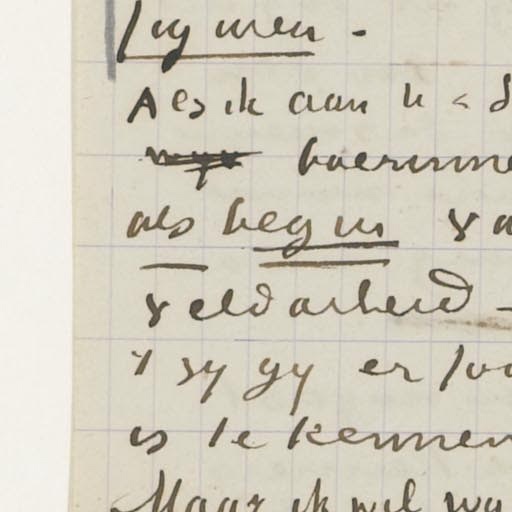 fig uren -
Als ik aan U
boerinne
als begin v
veldarbeid -
't zy gy er
is te kennen
Maar ik wil